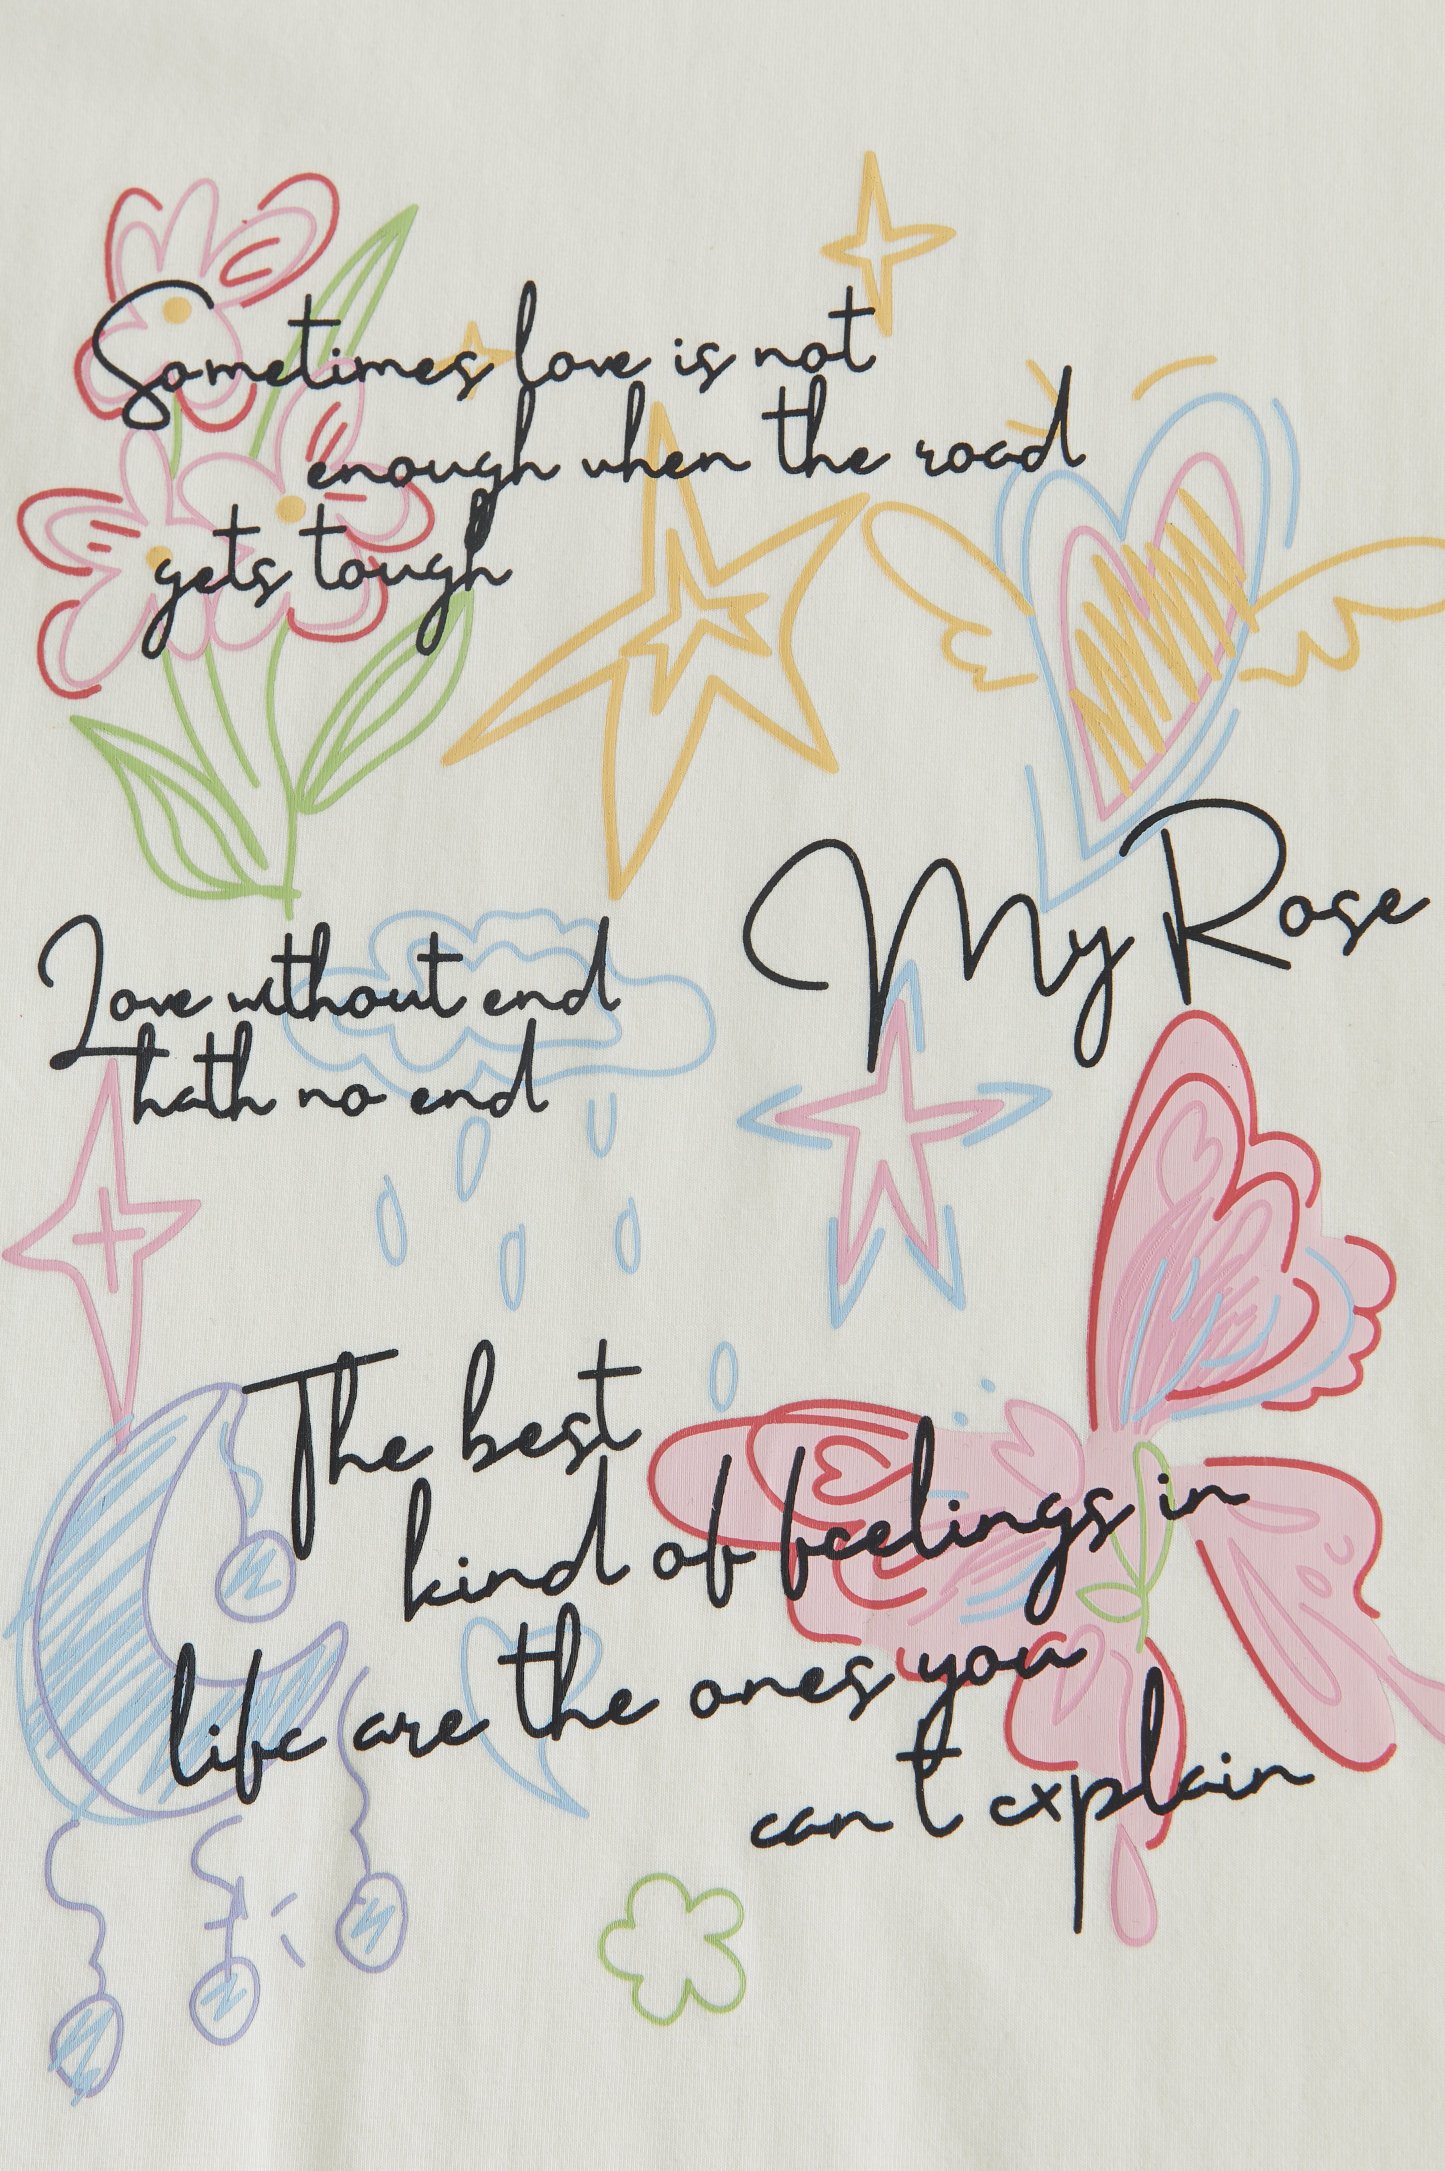 Sometimes love is not
enough when the road
gets tough
My Rose
Love without end
hath no end
The best
kind of feelings in
life are the ones you
can't explain